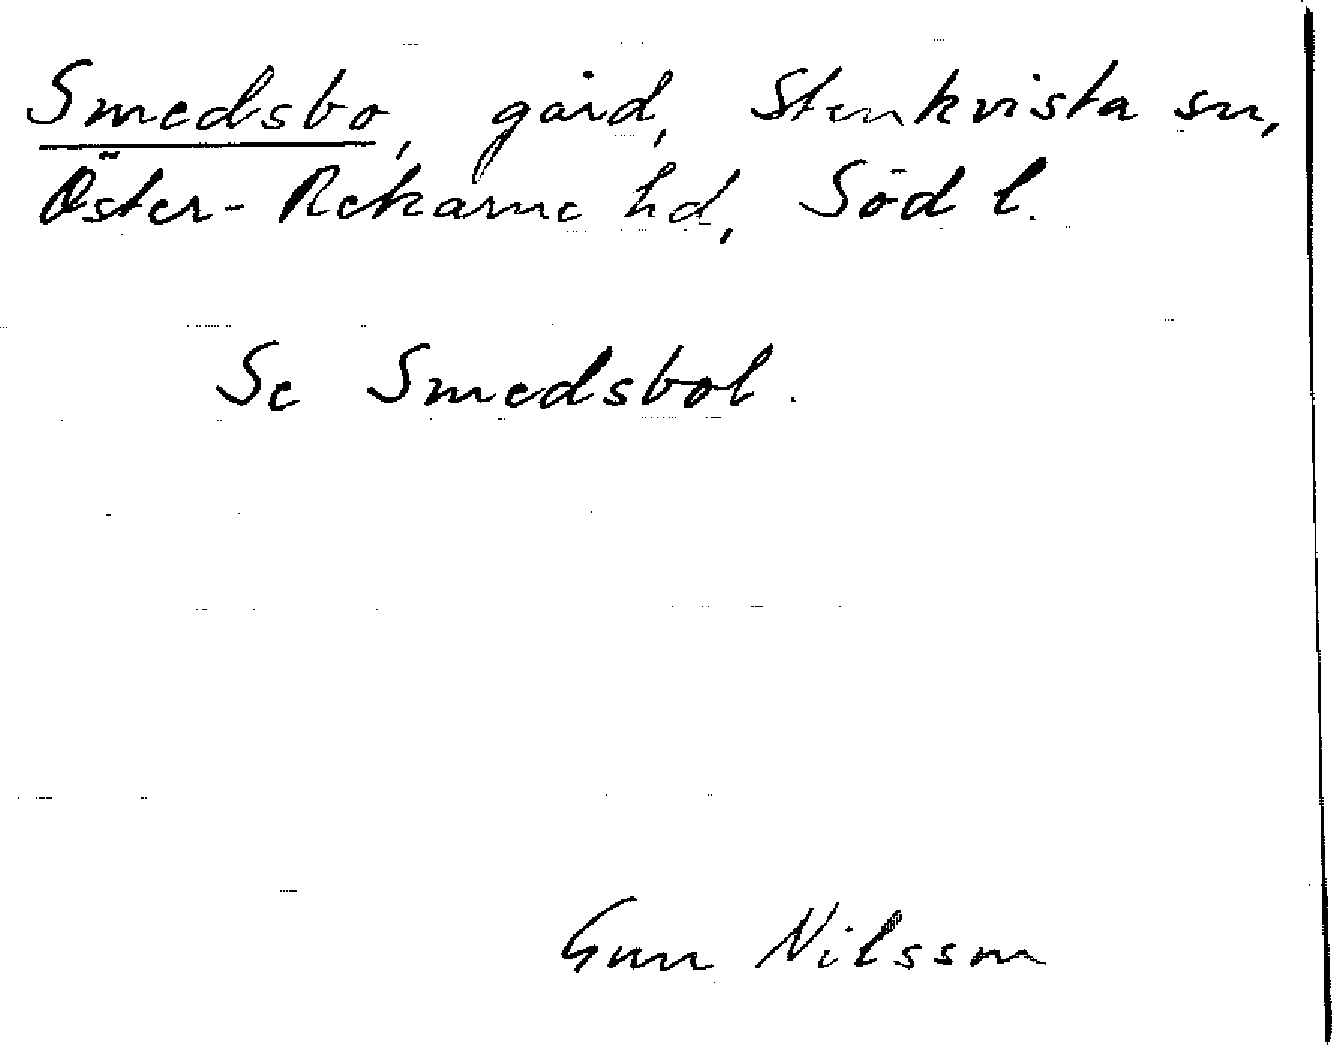 Smedsbo, gård, Stenkvista sn,
Öster-Rekarne hd, Söd l.
Se Smedsbol.
Gun Nilsson